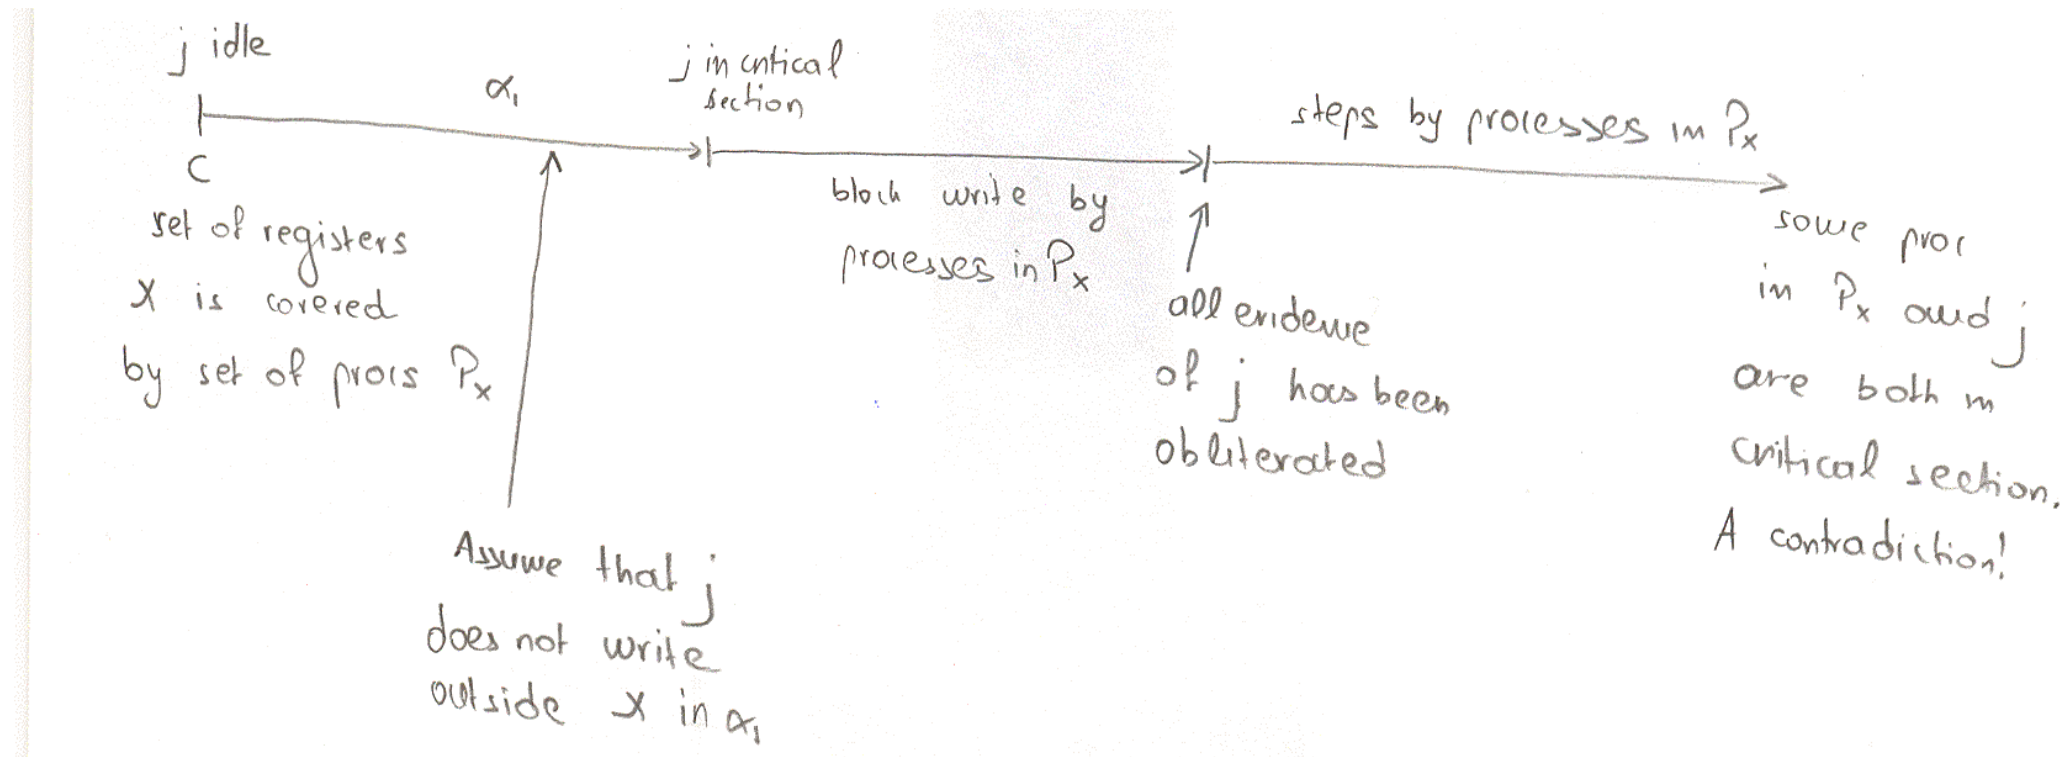 j idle
α₁
j in critical
section
steps by processes in Pₓ
C
set of registers
X is covered
by set of procs Pₓ
block write by
processes in Pₓ
all evidence
of j has been
obliterated
some proc
in Pₓ and j
are both in
critical section.
A contradiction!
Assume that j
does not write
outside X in α₁